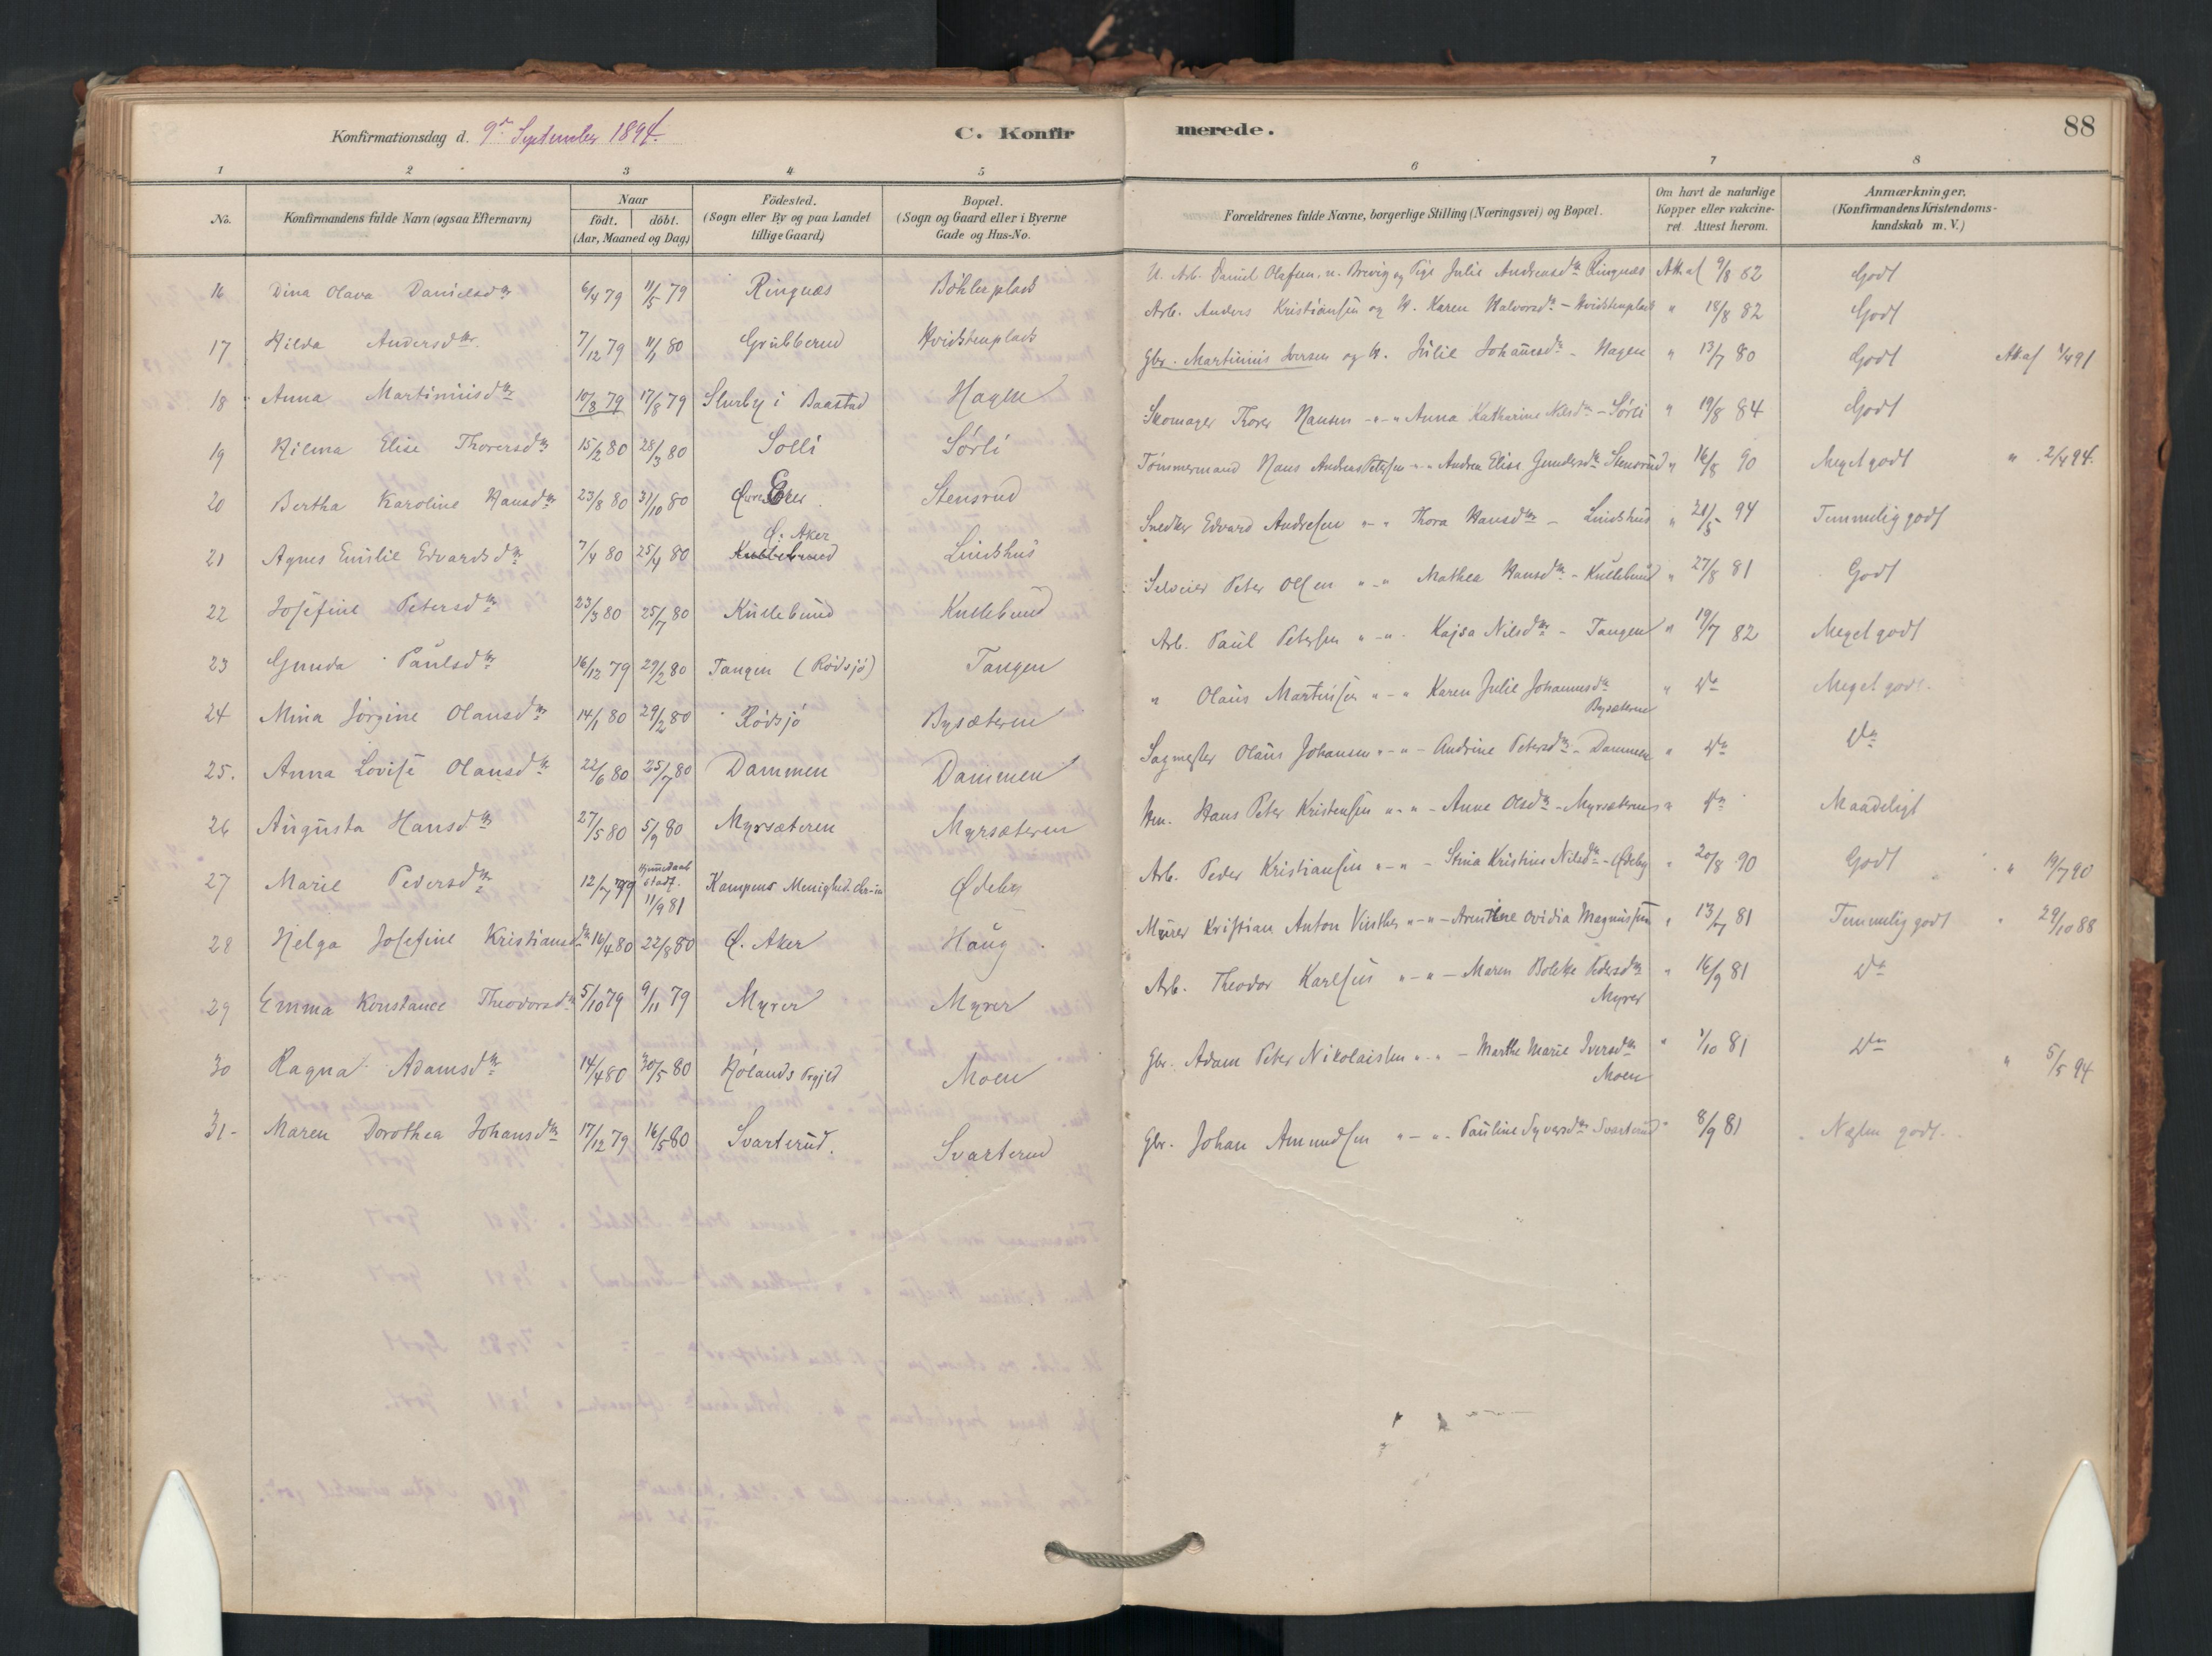 Konfirmationsdag d. 9de September 1894.
C. Konfirmerede.
88
1 2 3 4 5 6 7 8
No.
Konfirmandens fulde Navn (ogsaa Efternavn)
Naar
födt. döbt.
(Aar, Maaned og Dag)
Födested.
(Sogn eller By og paa Landet
tillige Gaard)
Bopæl.
(Sogn og Gaard eller i Byerne
Gade og Hus-No.
Forældrenes fulde Navne, borgerlige Stilling (Næringsvei) og Bopæl.
Om havt de naturlige
Kopper eller vakcine-
ret Attest herom.
Anmærkninger.
(Konfirmandens Kristendoms-
kundskab m. V.)
16 Dina Olava Danielsdtr 6/4 79 11/5 79 Ringnæs Böhlerplads U. Arb. Daniel Olafsen, n. Brevig og Pige Julie Andreasdtr Ringnæs Att af 9/8 82 Godt
17 Hilda Andersdtr 7/12 79 11/1 80 Grübberud Kvidstenplads Arb. Anders Kristiansen og H. Karen Halvorsdtr - Kvidstenplads " 18/8 82 Godt
18 Anna Martiniusdtr 10/8 79 17/8 79 Slurby i Baastad Hagen Gbr. Martinius Iversen og H. Julie Johannesdtr - Hagen " 13/7 80 Godt Att af 1/4 91
19 Hilma Elise Thorersdtr 15/2 80 28/3 80 Solli Sørli Skomager Thorer Hansen - " - " Anna Katharine Nilsdtr - Sørli " 19/8 84 Godt
20 Bertha Karoline Hansdtr 23/8 80 31/10 80 Stensrud Tömmermand Hans Anders Petersen " - " Andrea Elise Gundersdtr Stensrud " 16/8 90 Meget godt " 2/4 94.
21 Agnes Emilie Edvardsdtr 7/4 80 25/4 80 Ø. Aker
Kullebund Lindshus Snedker Edvard Andresen " - " Thora Hansdtr - Lindshus " 21/5 94 Temmelig godt
22 Josefine Petersdtr 23/3 80 25/7 80 Kullebund Kullebund Selveier Peter Olsen " - " Mathea Hansdtr - Kullebund " 27/8 81 Godt
23 Gunda Paulsdtr 16/12 79 29/2 80 Tangen (Rødsjö) Tangen Arb. Paul Petersen " - " Kajsa Nilsdtr - Tangen " 19/7 82 Meget godt
24 Mina Jörgine Olausdtr 14/1 80 29/2 80 Rödsjö Bysæteren " Olaus Martinsen " - " Karen Julie Johannesdtr
Bysæteren " Do Meget godt.
25. Anna Lovise Olausdtr 22/6 80 25/7 80 Dammen Dammen Sagmester Olaus Johansen " - " - Andrine Petersdtr - Dammen " Do Do
26 Augusta Hansdtr 27/5 80 5/9 80 Myrsæteren Myrsæteren Hm. Hans Peter Kristensen " - " - Anne Olsdtr - Myrsæteren " Do Maadeligt
27 Marie Pedersdtr 12/7 79 Hjemmedaab
stadf.
11/9 81 Kampens Menighed Chr-ia Ødeby Arb. Peder Kristiansen " - " - Stina Kristine Nilsdtr - Ødeby " 20/8 90 Godt " 19/7 90
28 Helga Josefine Kristiansdtr 16/4 80 22/8 80 Ø. Aker Haug Murer Kristian Anton Vinther " - " - Arentine Ovidia Magnussen " 13/7 81 Temmelig godt " 29/10 88
29 Emma Konstance Theodorsdtr 5/10 79 9/11 79 Myrer Myrer Arb. Theodor Karlsen " - " - Maren Bolette Pedersdtr
Myrer " 16/9 81 Do
30 Ragna Adamsdtr 14/4 80 30/5 80 Hölands Prgjld Moen Gbr. Adam Peter Nikolaissen " - " - Marthe Marie Iversdtr
Moen " 1/10 81 Do " 5/5 94
31- Maren Dorothea Johansdtr 17/12 79 16/5 80 Svarterud. Svarterud Gbr. Johan Amundsen " - " - Pauline Syversdtr Svarterud " 8/9 81 Næsten godt.